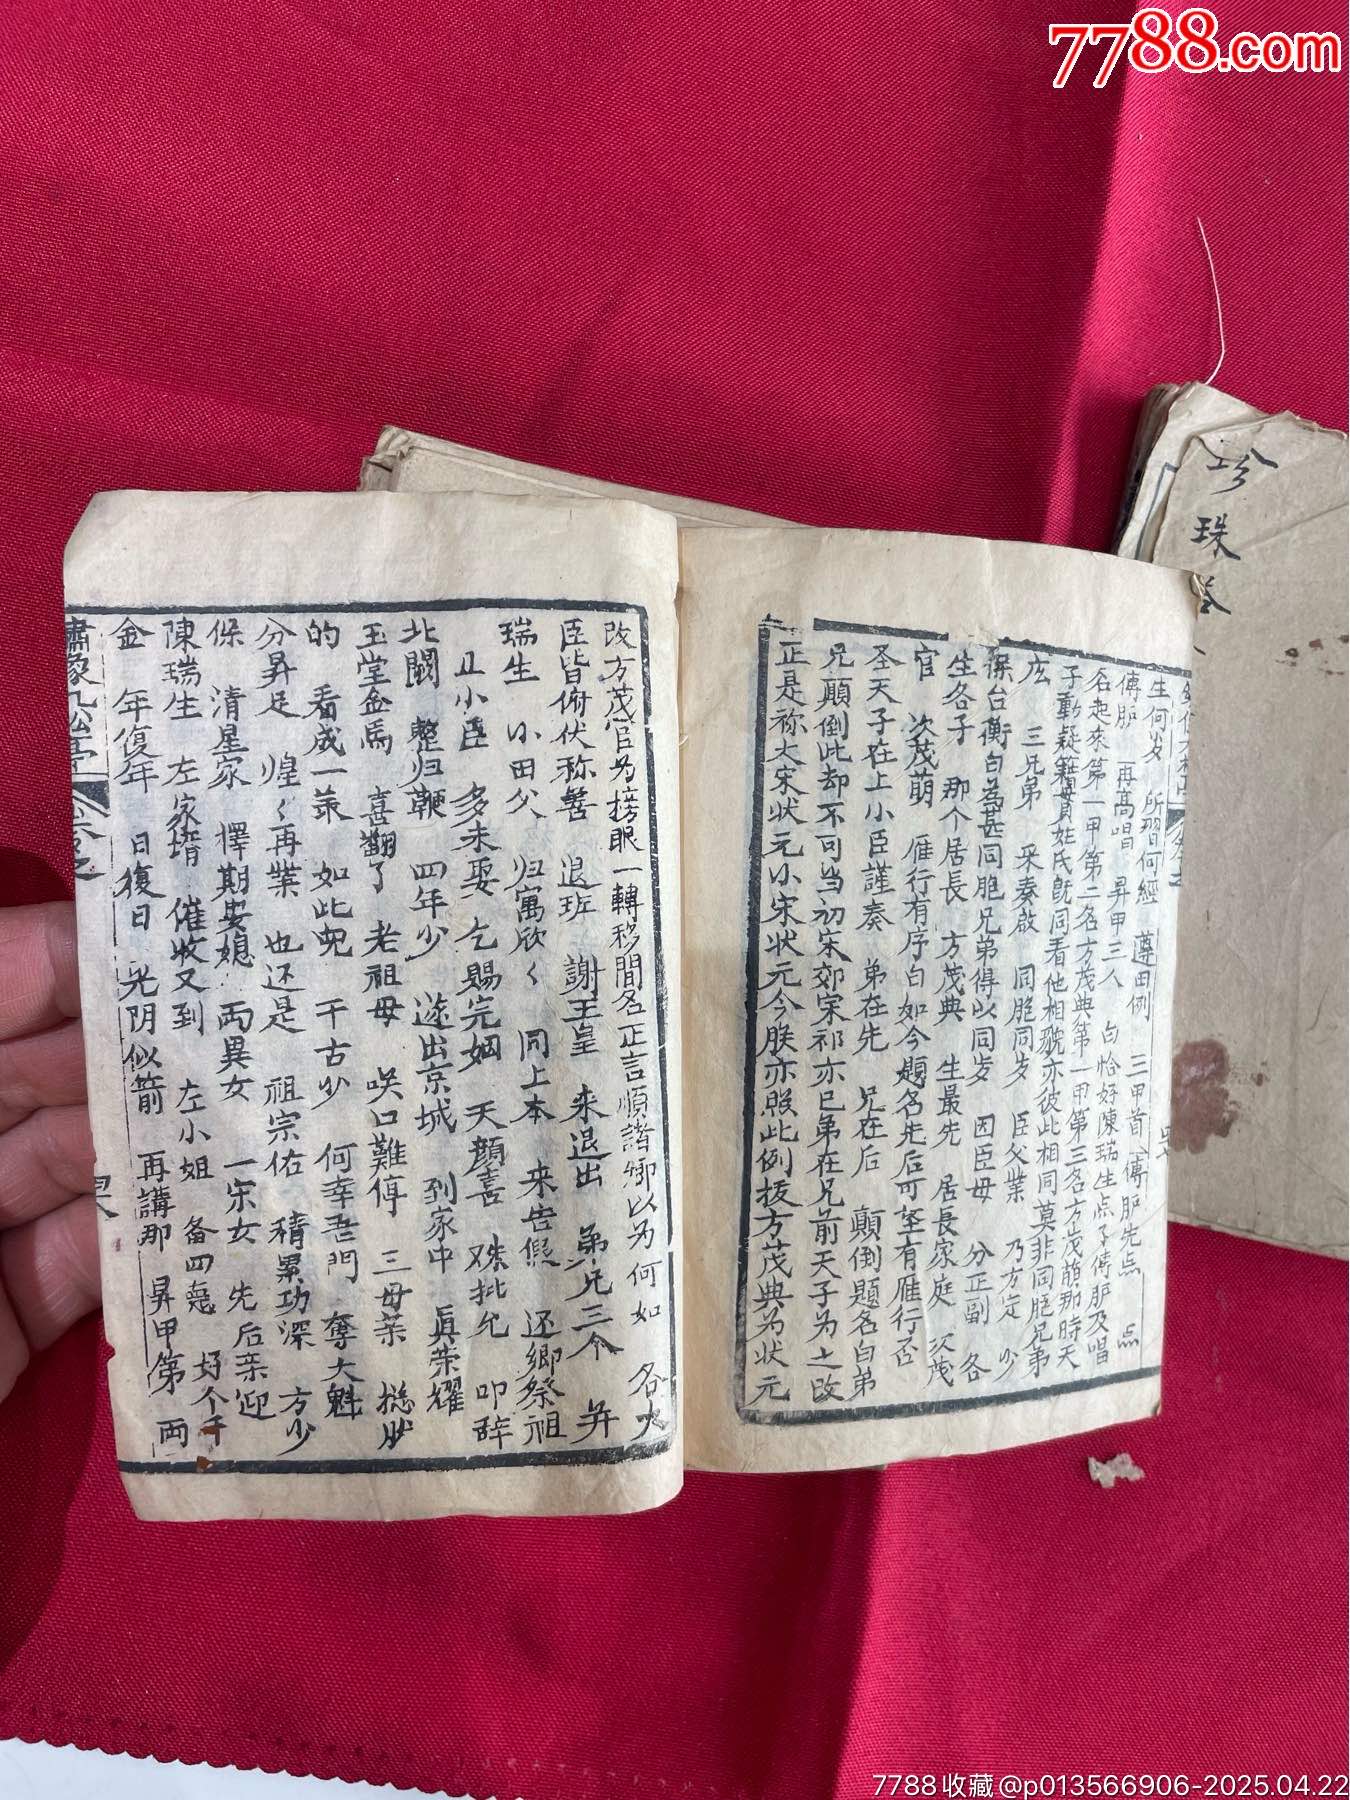 7788.com
珍珠
生何岁 所習何經 遵田例 三甲首 傳胪先点 点
傳胪 再髙唱 昇甲三人 白恰好陳瑞生点子傳胪及唱
名起來第一甲第二名方茂典第一甲第三名方茂萌那時天
子動疑籍貫姓氏旣同看他相貌亦彼此相同莫非同胞兄弟
庅 三兄弟 釆奏啟 同胞同岁 臣父業 乃方定 少
保台衡白為甚同胞兄弟得以同岁 因臣母 分正副 各
生各子 那个居長 方茂典 生最先 居長家庭 次茂
官 次茂萌 雁行有序白如今題名先后可至有雁行否
圣天子在上小臣謹奏 弟在先 兄在后 顛倒題名白弟
兄顛倒此却不可当初宋郊宋祁亦已弟在兄前天子為之改
正是称大宋状元小宋状元今朕亦照此例抜方茂典為状元
改方茂官为榜眼一轉移間名正言順諸卿以为何如 各大
臣皆俯伏称善 退班 謝王皇 来退出 弟兄三个 并
瑞生 小田父 归寓欣々 同上本 来告假 还鄉祭祖
且小臣 多未娶 乞賜完姻 天顔喜 硃批允 叩辞
北闕 整归鞭 四年少 遂出京城 到家中 眞荣耀
玉堂金馬 喜翻了 老祖母 咲口難停 三母亲
的 看成一菉 如此 千古少 何幸吾門 奪大魁
分昇足 煌々再業 也还是 祖宗佑 積累功深 方少
保 清星家 擇期娶媳 兩異女 一宋女 先后亲迎
陳瑞生 左家壻 催收又到 左小姐 备四 好个千
金 年復年 日復日 光阴似箭 再講那 昇甲第 兩
7788收藏@p013566906-2025.04.22